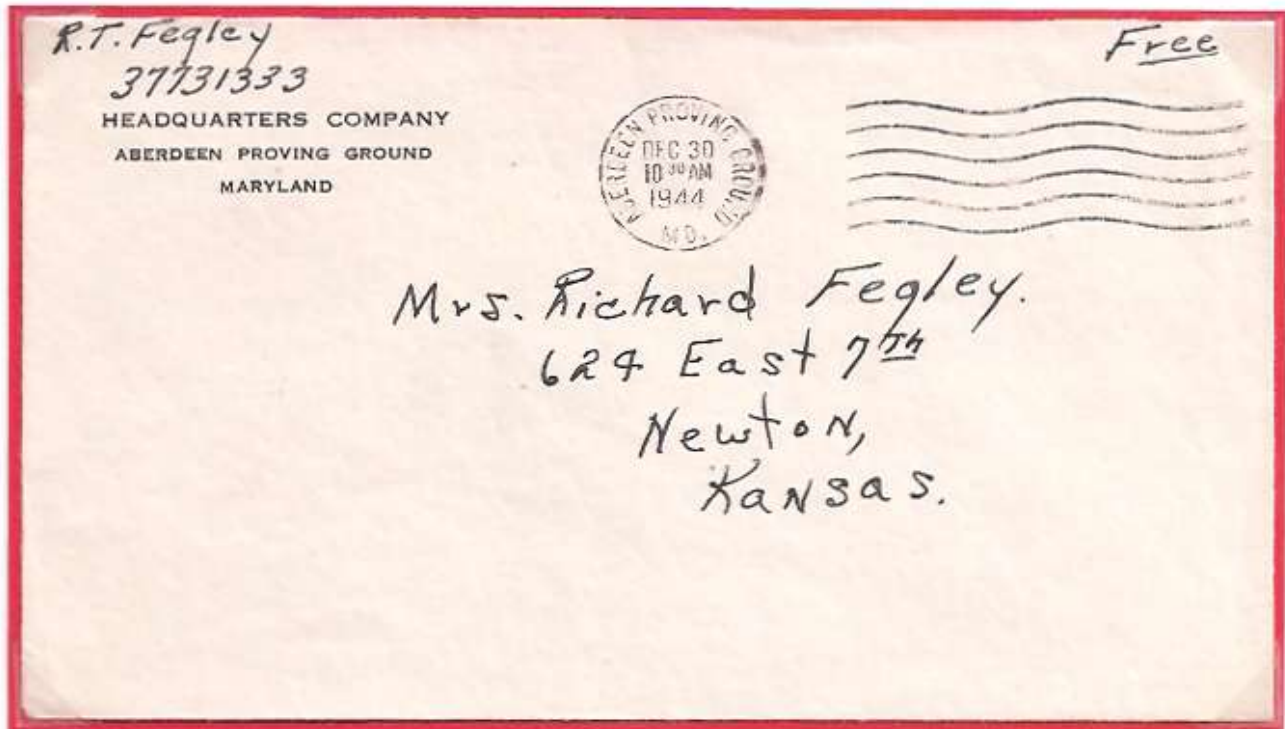 R.T. Fegley
37731333
HEADQUARTERS COMPANY
ABERDEEN PROVING GROUND
MARYLAND
Free
ABERDEEN PROVING GROUND
DEC 30
10 30 AM
1944
MD.
Mrs. Richard Fegley.
624 East 7th
Newton,
Kansas.